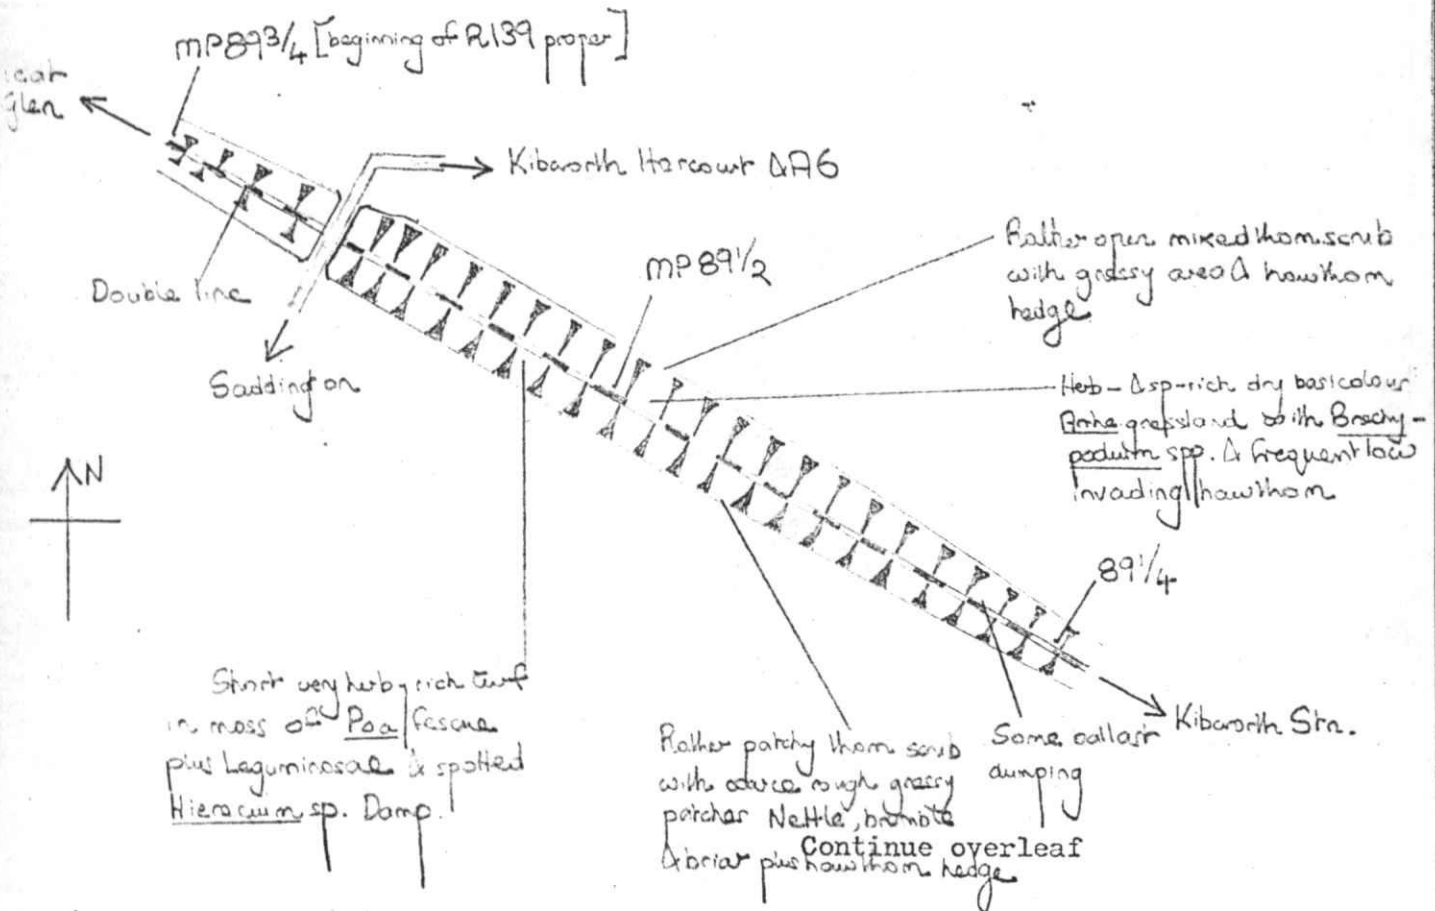 MP89 3/4 [beginning of R139 proper]
Glen
Kibworth Harcourt & A6
Double line
Saddington
MP89 1/2
Rather open mixed thorn scrub
with grassy area & hawthorn
hedge
Herb- & sp-rich dry basicolous
Arrhe grassland with Brachy-
podium spp. & frequent low
invading hawthorn
N
89 1/4
Short very herb-rich turf
in moss of Poa/fescue
plus Leguminosae & spotted
Hieracium sp. Damp.
Rather patchy thorn scrub
with coarse rough grassy
patches Nettle, bramble
& briar plus hawthorn hedge
Some ballast
dumping
Kibworth Stn.
Continue overleaf